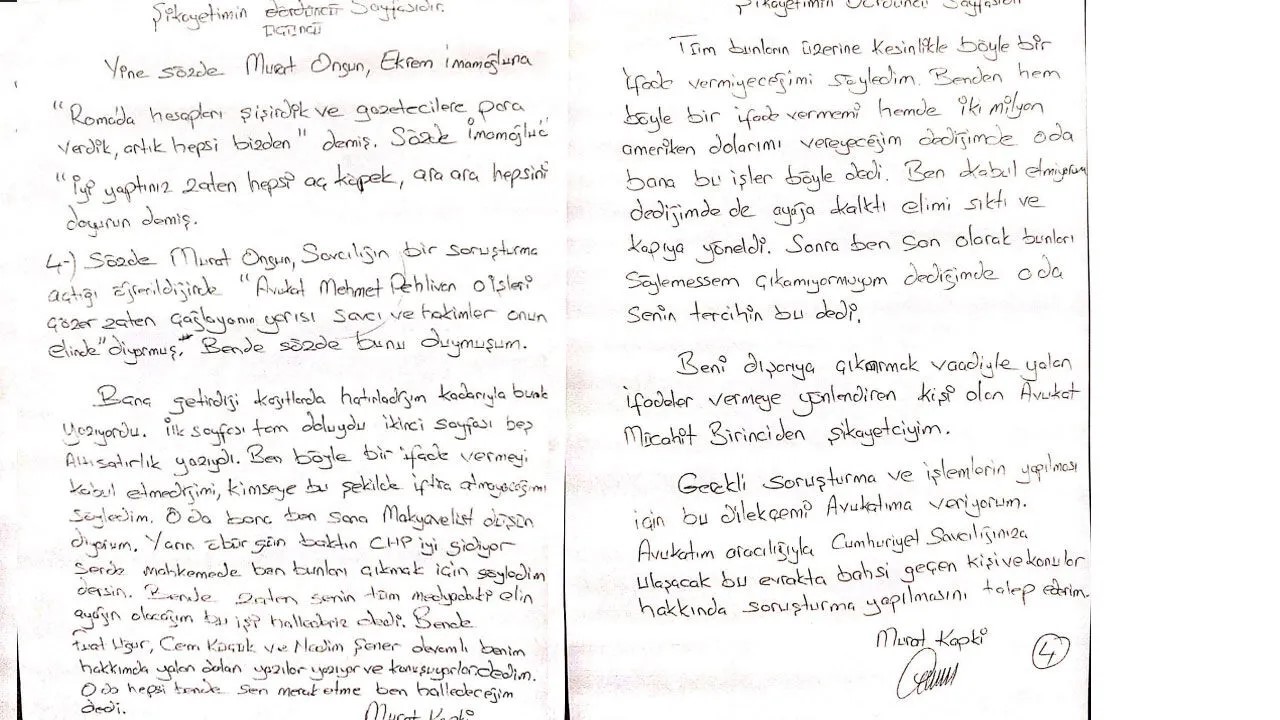 Şikayetimin dördüncü Sayfasıdır.
üçüncü
Yine sözde Murat Ongun, Ekrem İmamoğluna
"Romada hesapları şişirdik ve gazetecilere para
verdik, artık hepsi bizden" demiş. Sözde İmamoğluc
"İyi yaptınız zaten hepsi aç köpek, ara ara hepsini
doyurun demiş.
4-) Sözde Murat Ongun, Savcılığın bir soruşturma
açtığı öğrenildiğinde "Avukat Mehmet Pehlivan o işleri
çözer zaten Çağlayanın yarısı savcı ve hakimler onun
elinde" diyormuş. Bende sözde bunu duymuşum.
Bana getirdiği kağıtlarda hatırladığım kadarıyla bunlar
yazıyordu. ilk sayfası tam doluydu ikinci sayfası beş
Altı satırlık yazıydı. Ben böyle bir ifade vermeyi
kabul etmediğimi, kimseye bu şekilde iftira atmayacağımı
söyledim. O da bana ben sana Makyavelist düşün
diyorum. Yarın öbür gün baktın CHP iyi gidiyor
sende mahkemede ben bunları çıkmak için söyledim
dersin. Bende zaten senin tüm medyadaki elin
ayağın olacağım bu işi hallederiz dedi. Bende
Fuat Uğur, Cem Küçük ve Nedim Şener devamlı benim
hakkımda yalan dolan yazılar yazıyor ve konuşuyorlar dedim.
O da hepsi bende sen merak etme ben halledeceğim
dedi.
Murat Kapki
Şikayetimin Dördüncü Sayfasıdır
Tüm bunların üzerine kesinlikle böyle bir
ifade vermiyeceğimi söyledim. Benden hem
böyle bir ifade vermemi hemde iki milyon
ameriken dolarımı vereyeceğim dediğimde oda
bana bu işler böyle dedi. Ben kabul etmiyorum
dediğimde de ayağa kalktı elimi sıktı ve
kapıya yöneldi. Sonra ben son olarak bunları
Söylemessem çıkamıyormuyum dediğimde oda
Senin tercihin bu dedi.
Beni dışarıya çıkarmak vaadiyle yalan
ifadeler vermeye yönlendiren kişi olan Avukat
Mücahit Birinciden şikayetciyim.
Gerekli soruşturma ve işlemlerin yapılması
için bu dilekçemi Avukatıma veriyorum.
Avukatım aracılığıyla Cumhuriyet Savcılığınıza
ulaşacak bu evrakta bahsi geçen kişi ve konular
hakkında soruşturma yapılmasını talep ederim.
Murat Kapki
4